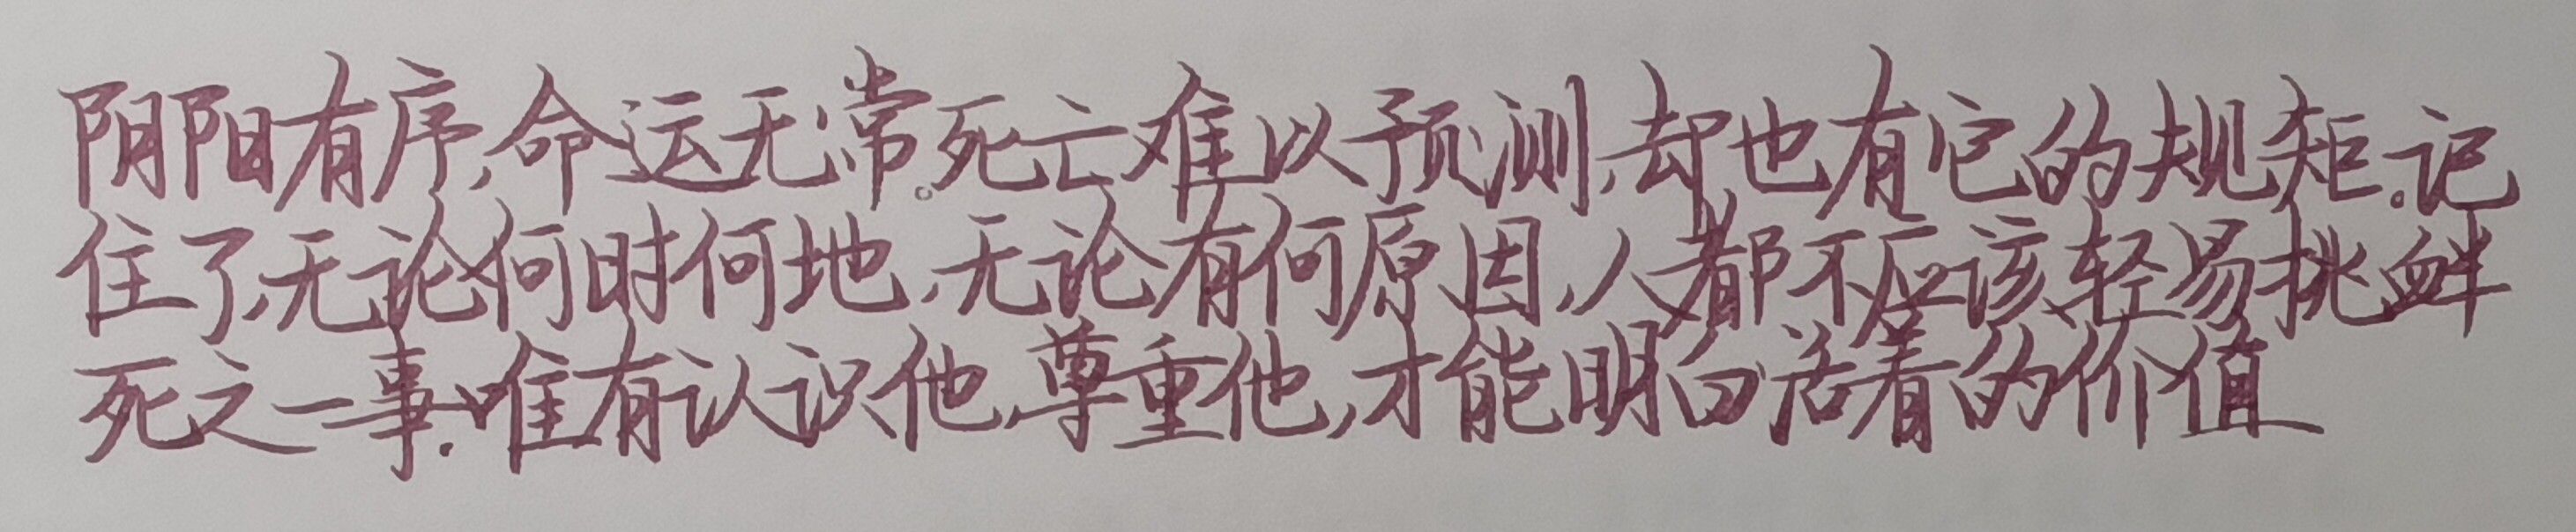 阴阳有序,命运无常。死亡难以预测,却也有它的规矩.记
住了,无论何时何地,无论有何原因,人都不应该轻易挑衅
死之一事.唯有认识他,尊重他,才能明白活着的价值